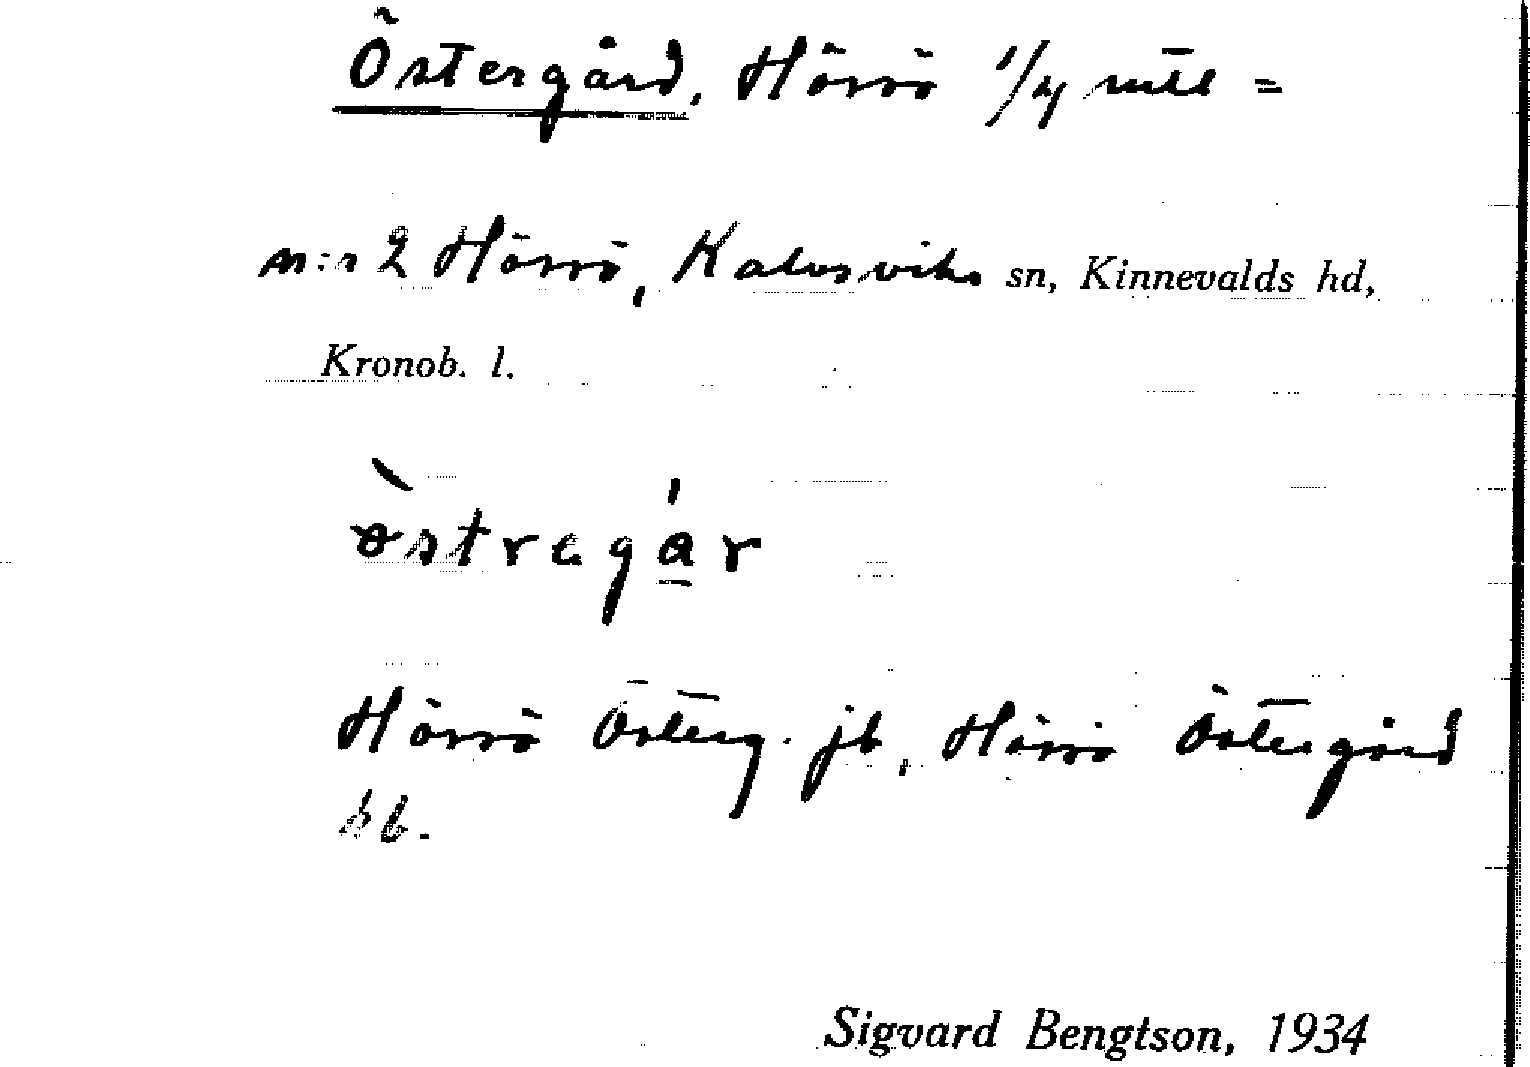 Östergård, Hörsö 1/4 mtl =
n:r 2 Hörsö, Kalvsviks sn, Kinnevalds hd,
Kronob. l.
östregár
Hörsö Österg. jb, Hörsö Östergård
kb.
Sigvard Bengtson, 1934